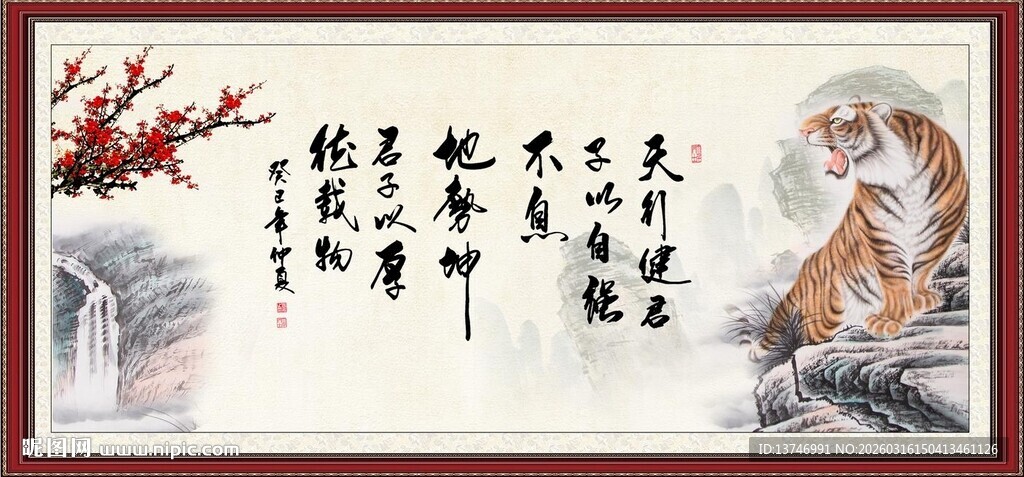 天行健君
子以自强
不息
地勢坤
君子以厚
德載物
癸巳年仲夏
昵图网 www.nipic.com
ID:13746991 NO:20260316150413461126